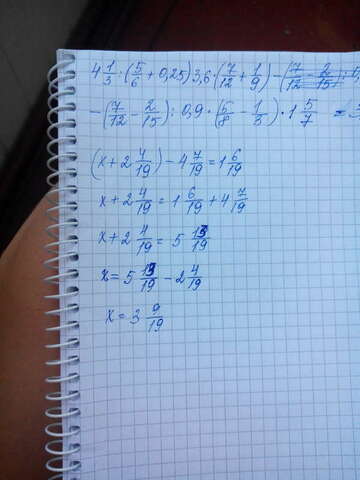 4 1/3 : (5/6 + 0,25) 3,6 · (7/12 + 1/9) - (7/12 - 2/15) :
- (7/12 - 2/15) : 0,9 · (5/8 - 1/3) · 1 5/7 =
(x + 2 4/19) - 4 7/19 = 1 6/19
x + 2 4/19 = 1 6/19 + 4 7/19
x + 2 4/19 = 5 13/19
x = 5 13/19 - 2 4/19
x = 3 9/19